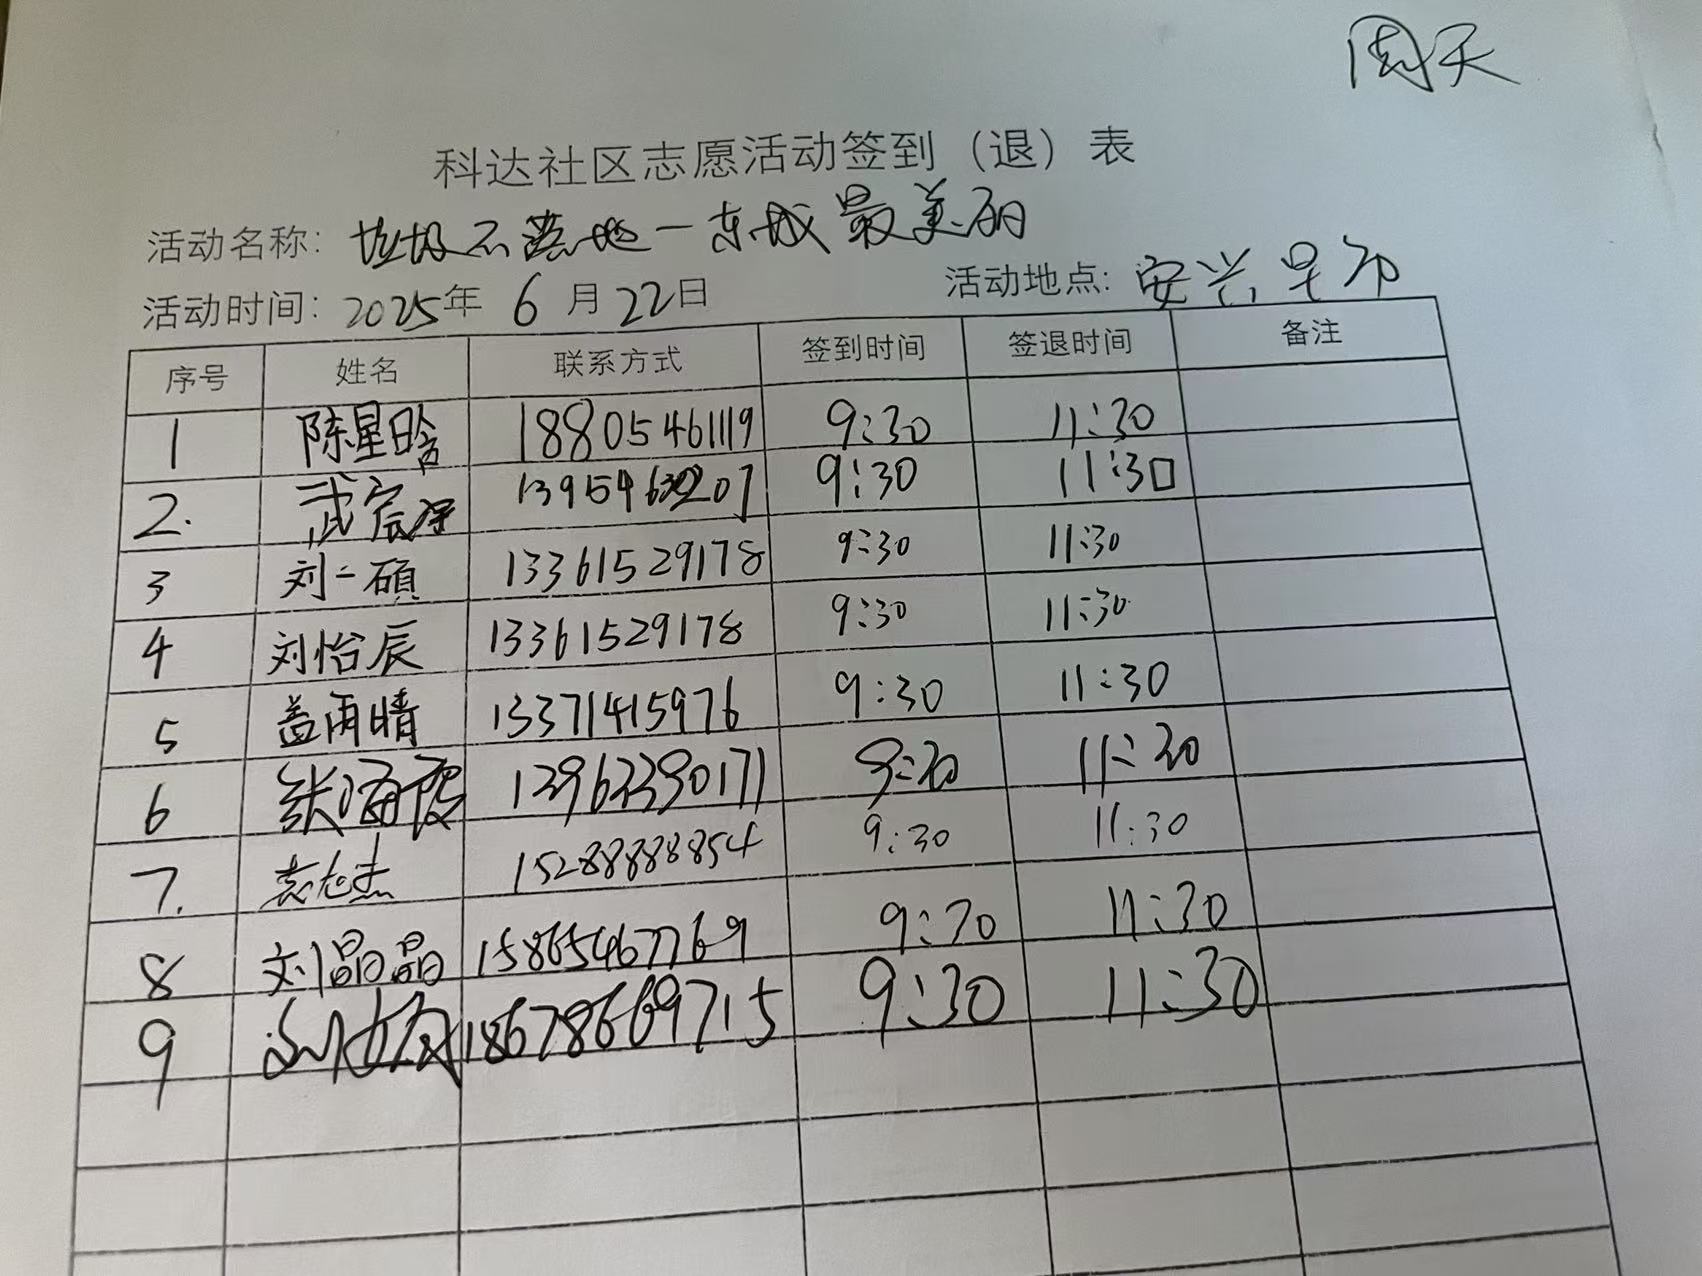 周天
科达社区志愿活动签到（退）表
活动名称：垃圾不落地一东城最美丽
活动时间：2025年 6 月 22日 活动地点：安兴
序号 姓名 联系方式 签到时间 签退时间 备注
1 陈星晗 18805461119 9:30 11:30
2. 武宸 9:30 11:30
3 刘一硕 13361529178 9:30 11:30
4 刘怡辰 13361529178 9:30 11:30
5 盖雨晴 13371415976 9:30 11:30
6 张海霞 9:30 11:30
7. 15288888854 9:30 11:30
8 刘晶晶 15865467769 9:30 11:30
9 18678669715 9:30 11:30